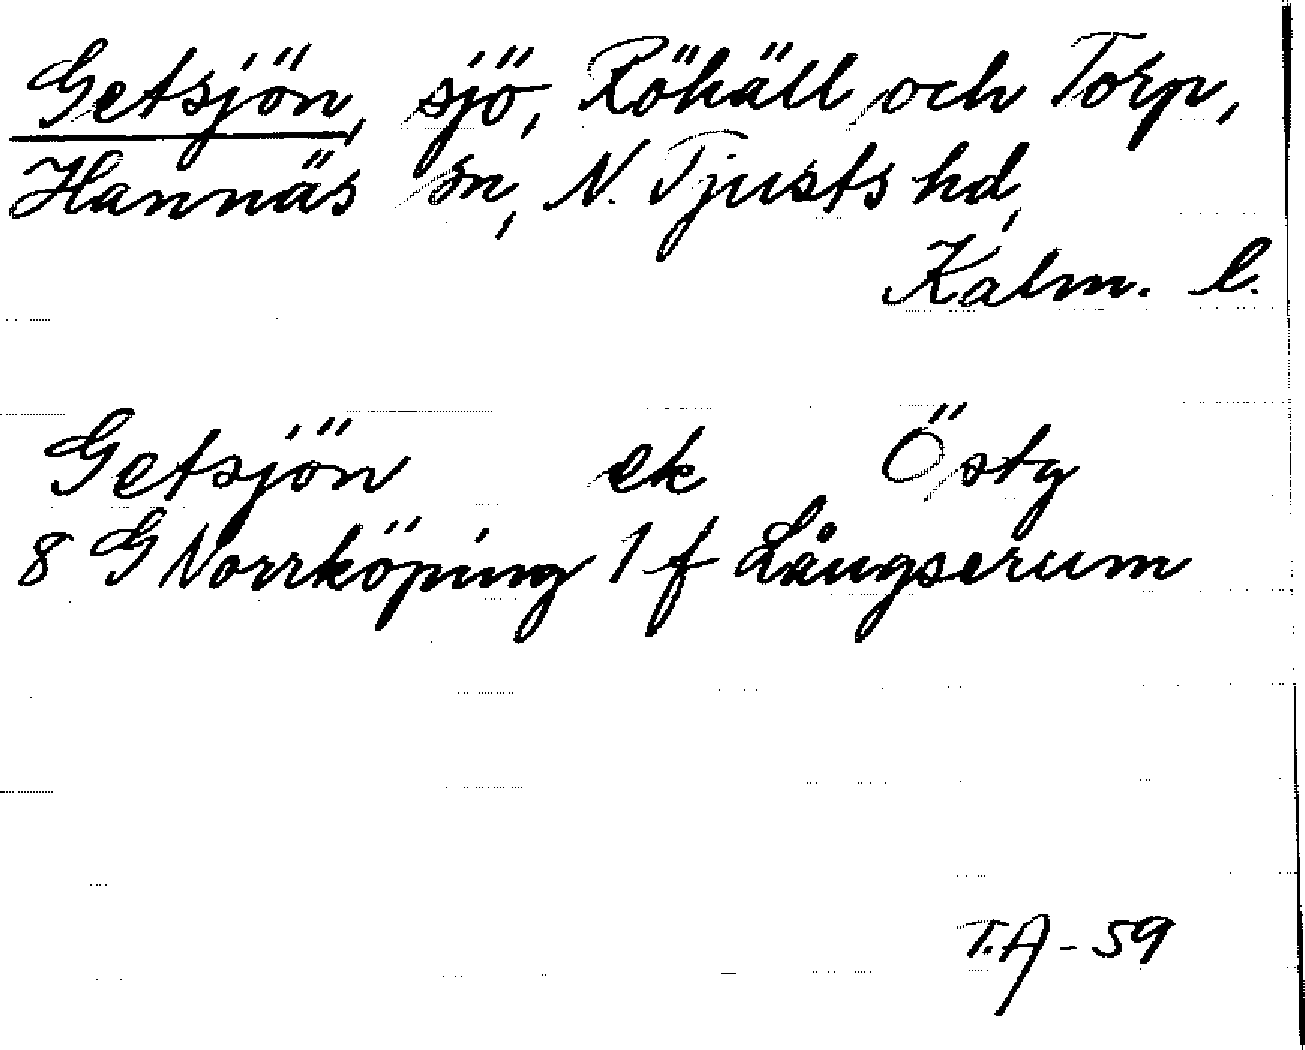 Getsjön, sjö, Röhäll och Torp,
Hannäs sn, N. Tjusts hd,
Kalm. l.
Getsjön ek Östg
8 G Norrköping 1 f Långserum
T.A-59